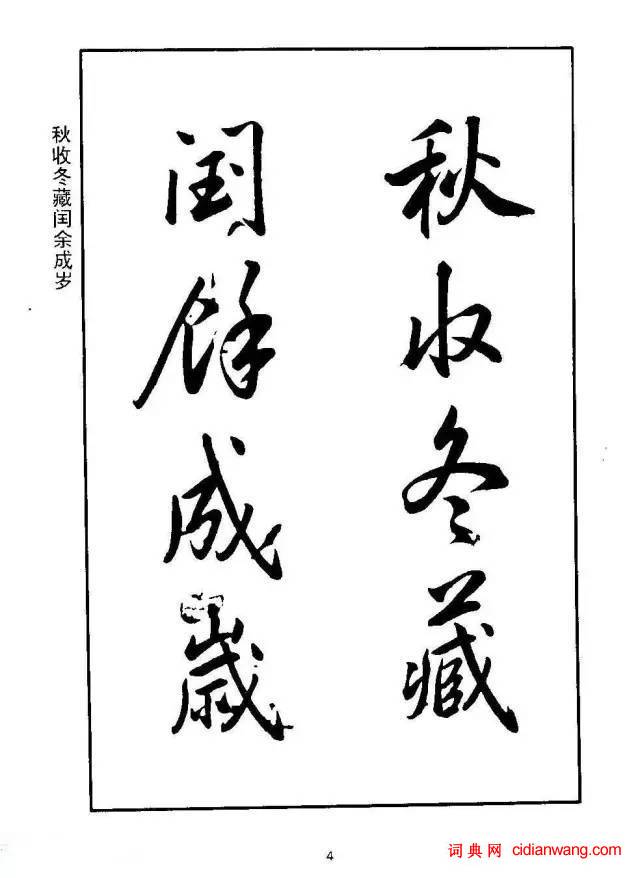 秋收冬藏
闰餘成歲
秋收冬藏闰余成岁
4
词典网 cidianwang.com